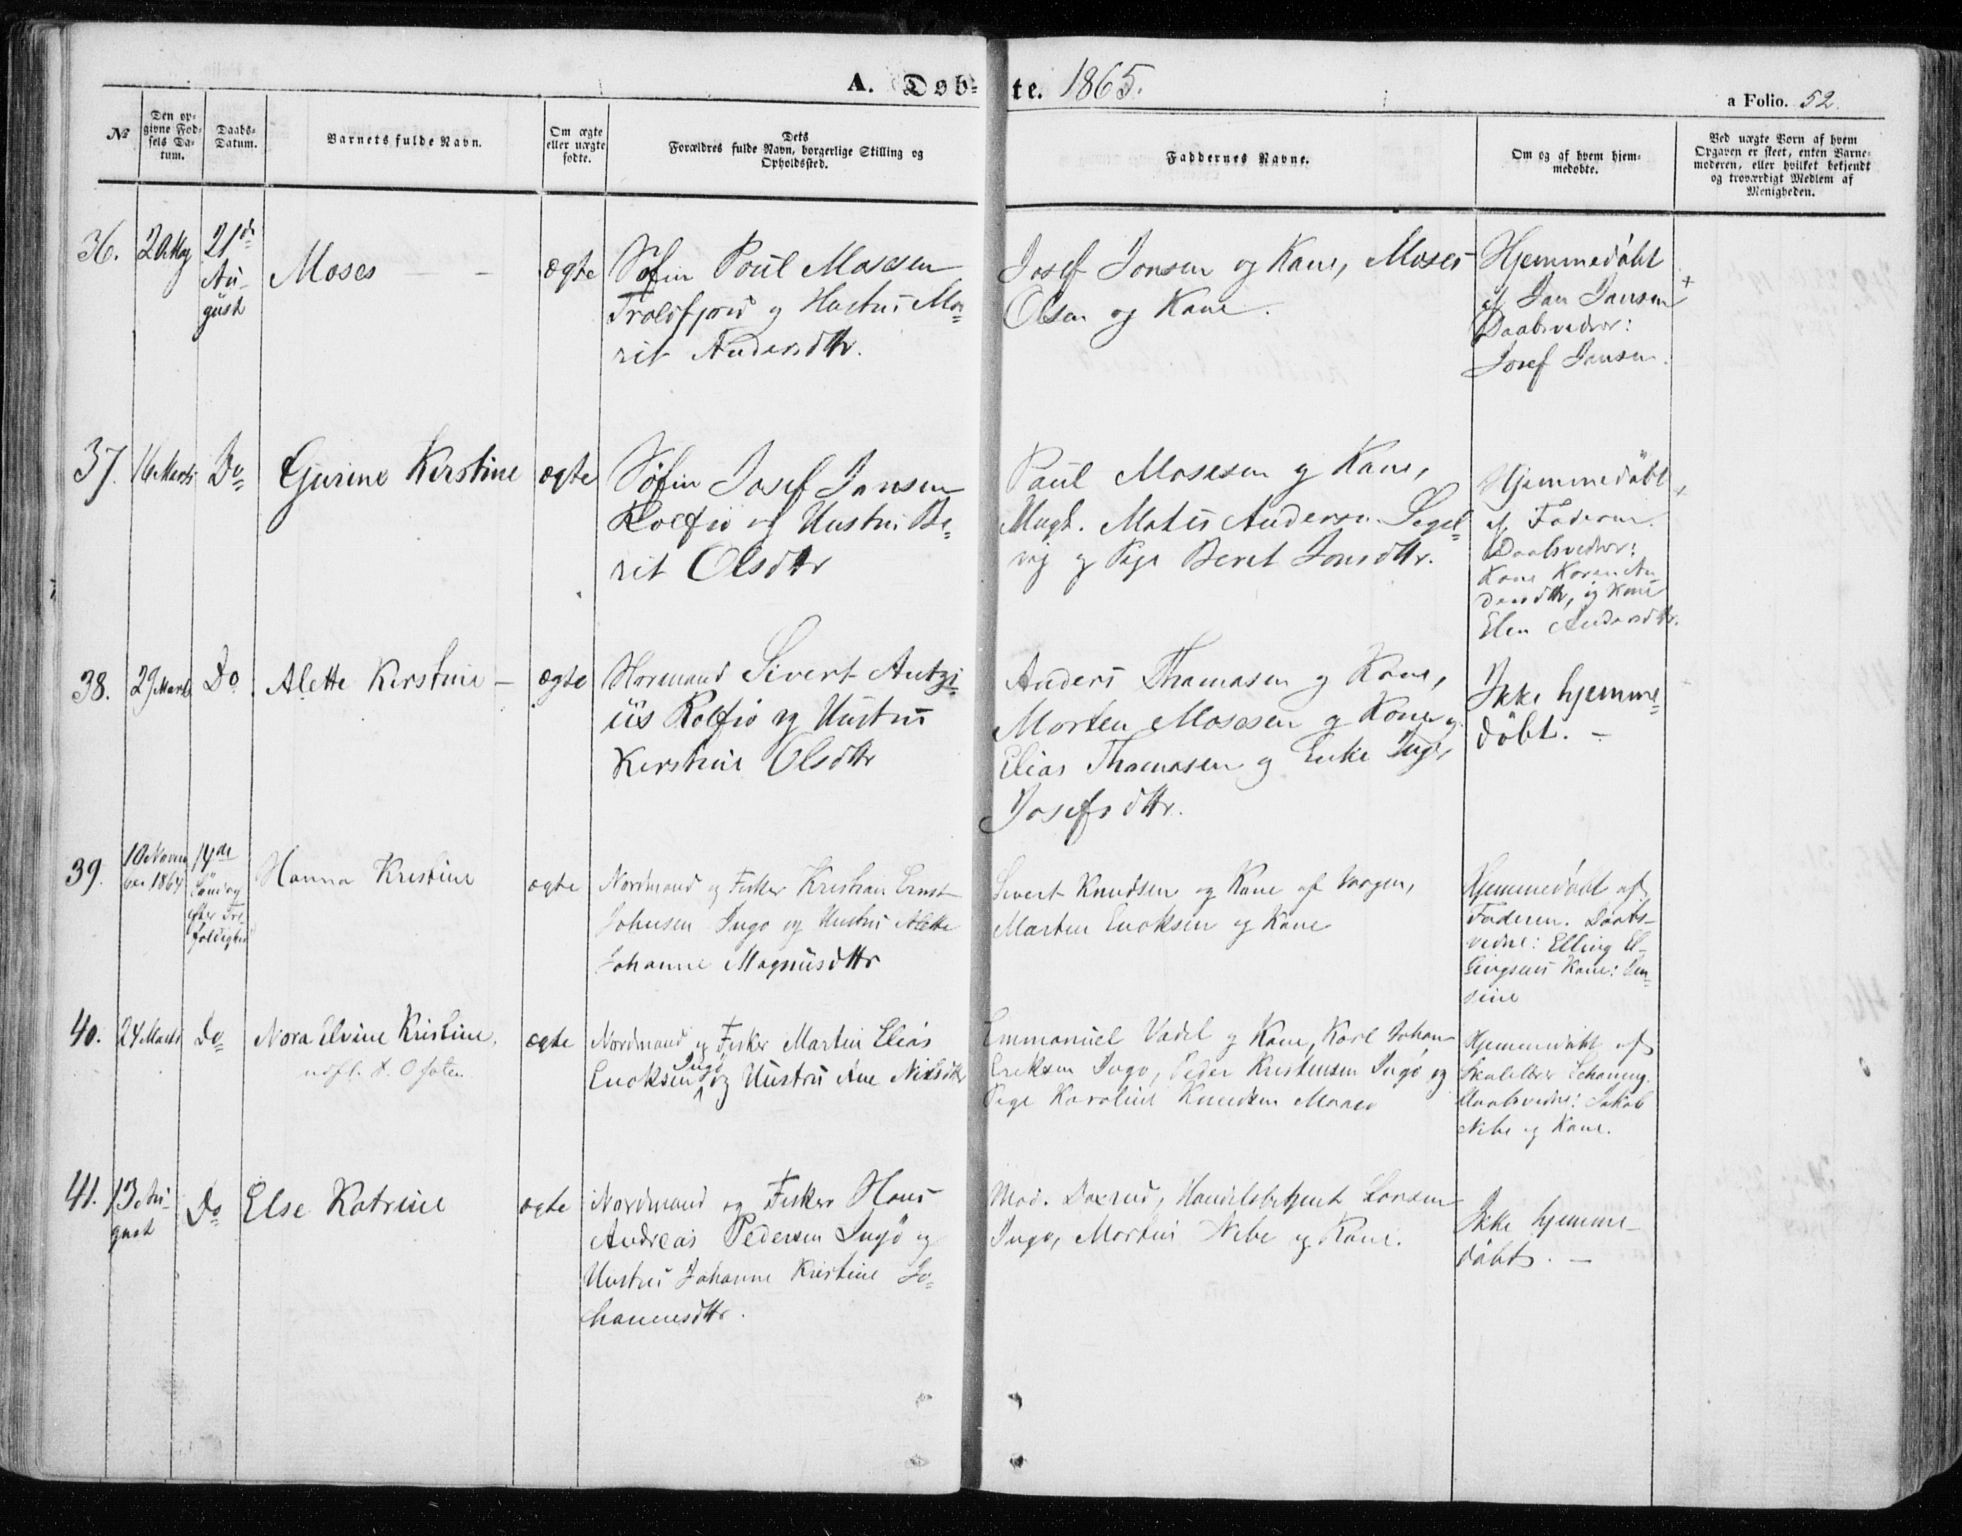 A. Døbte. 1865.
a Folio. 52.
No
Den opgivne Fødsels Datum.
Daabs-Datum.
Barnets fulde Navn.
Om ægte eller uægte fødte.
Dets Forældres fulde Navn, borgerlige Stilling og Opholdssted.
Faddernes Navne.
Om og af hvem hjemmedøbte.
Ved uægte Børn af hvem Opgaven er skeet, enten Barnemoderen, eller hvilket bekjendt og troværdigt Medlem af Menigheden.
36.
21de
Au-
gust
Moses
ægte
Søfin Poul Mosesen
Troldfjord og Hustru Ma-
rit Andersdttr.
Josef Jonsen og Kone, Moses
Olsen og Kone.
Hjemmedøbt
af Jon Jansen
Daabsvidner:
Josef Jansen.
37.
16 Marts
Do
Gjurine Kerstine
ægte
Søfin Josef Jansen
Rolfsø og Hustru Be-
rit Olsdttr
Paul Mosesen og Kone,
Ungk. Matis Andersen Segel-
vig og Pige Beret Jonsdttr.
Hjemmedøbt
af Faderen.
Daabsvidner:
Kone Karen An-
dersdttr, og Kone
Elen Andersdttr.
38.
29 Marts
Do
Alette Kerstine
ægte
Normand Sivert Antzi-
us Rolfsø og Hustru
Kerstine Olsdttr
Anders Thomasen og Kone,
Morten Mosesen og Kone og
Elias Thomasen og Enke Inger
Josefsdttr.
Ikke hjemme-
døbt.
39.
10 Novem
ber 1864
14de
Søndag
efter Tre-
foldighed
Hanna Kristine
ægte
Nordmand og Fisker Kristian Ernst
Johnsen Ingø og Hustru Alette
Johanne Magnusdttr
Sivert Knudsen og Kone af
Marten Enoksen og Kone
Hjemmedøbt af
Faderen. Daabs-
vidne: Elling El-
lingsens Kone:
40.
24 Marts
Do
Nora Elvine Kristine.
ægte
Nordmand og Fisker Martin Elias
Enoksen Ingø og Hustru Ane Nilsdttr
Emmanuel Vadel og Kone, Karl Johan
Eriksen Ingø, Peder Kristensen Ingø og
Pige Karoline Knudsen Maasø
Hjemmedøbt af
Skolelærer Schaning.
Daabsvidne: Jakob
Nibe og Kone.
41.
13 Au-
gust
Do
Else Katrine
ægte
Nordmand og Fisker Hans
Andreas Pedersen Ingø og
Hustru Johanne Kristine Jo-
hannesdttr.
Mad. Handelsbetjent Larsen
Ingø, Martin Nibe og Kone.
Ikke hjemme-
døbt.